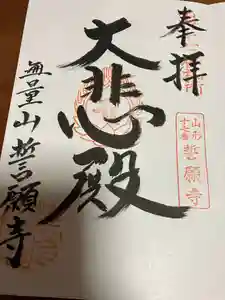 奉拝
山形
十七番
誓願寺
大悲殿
無量山誓願寺